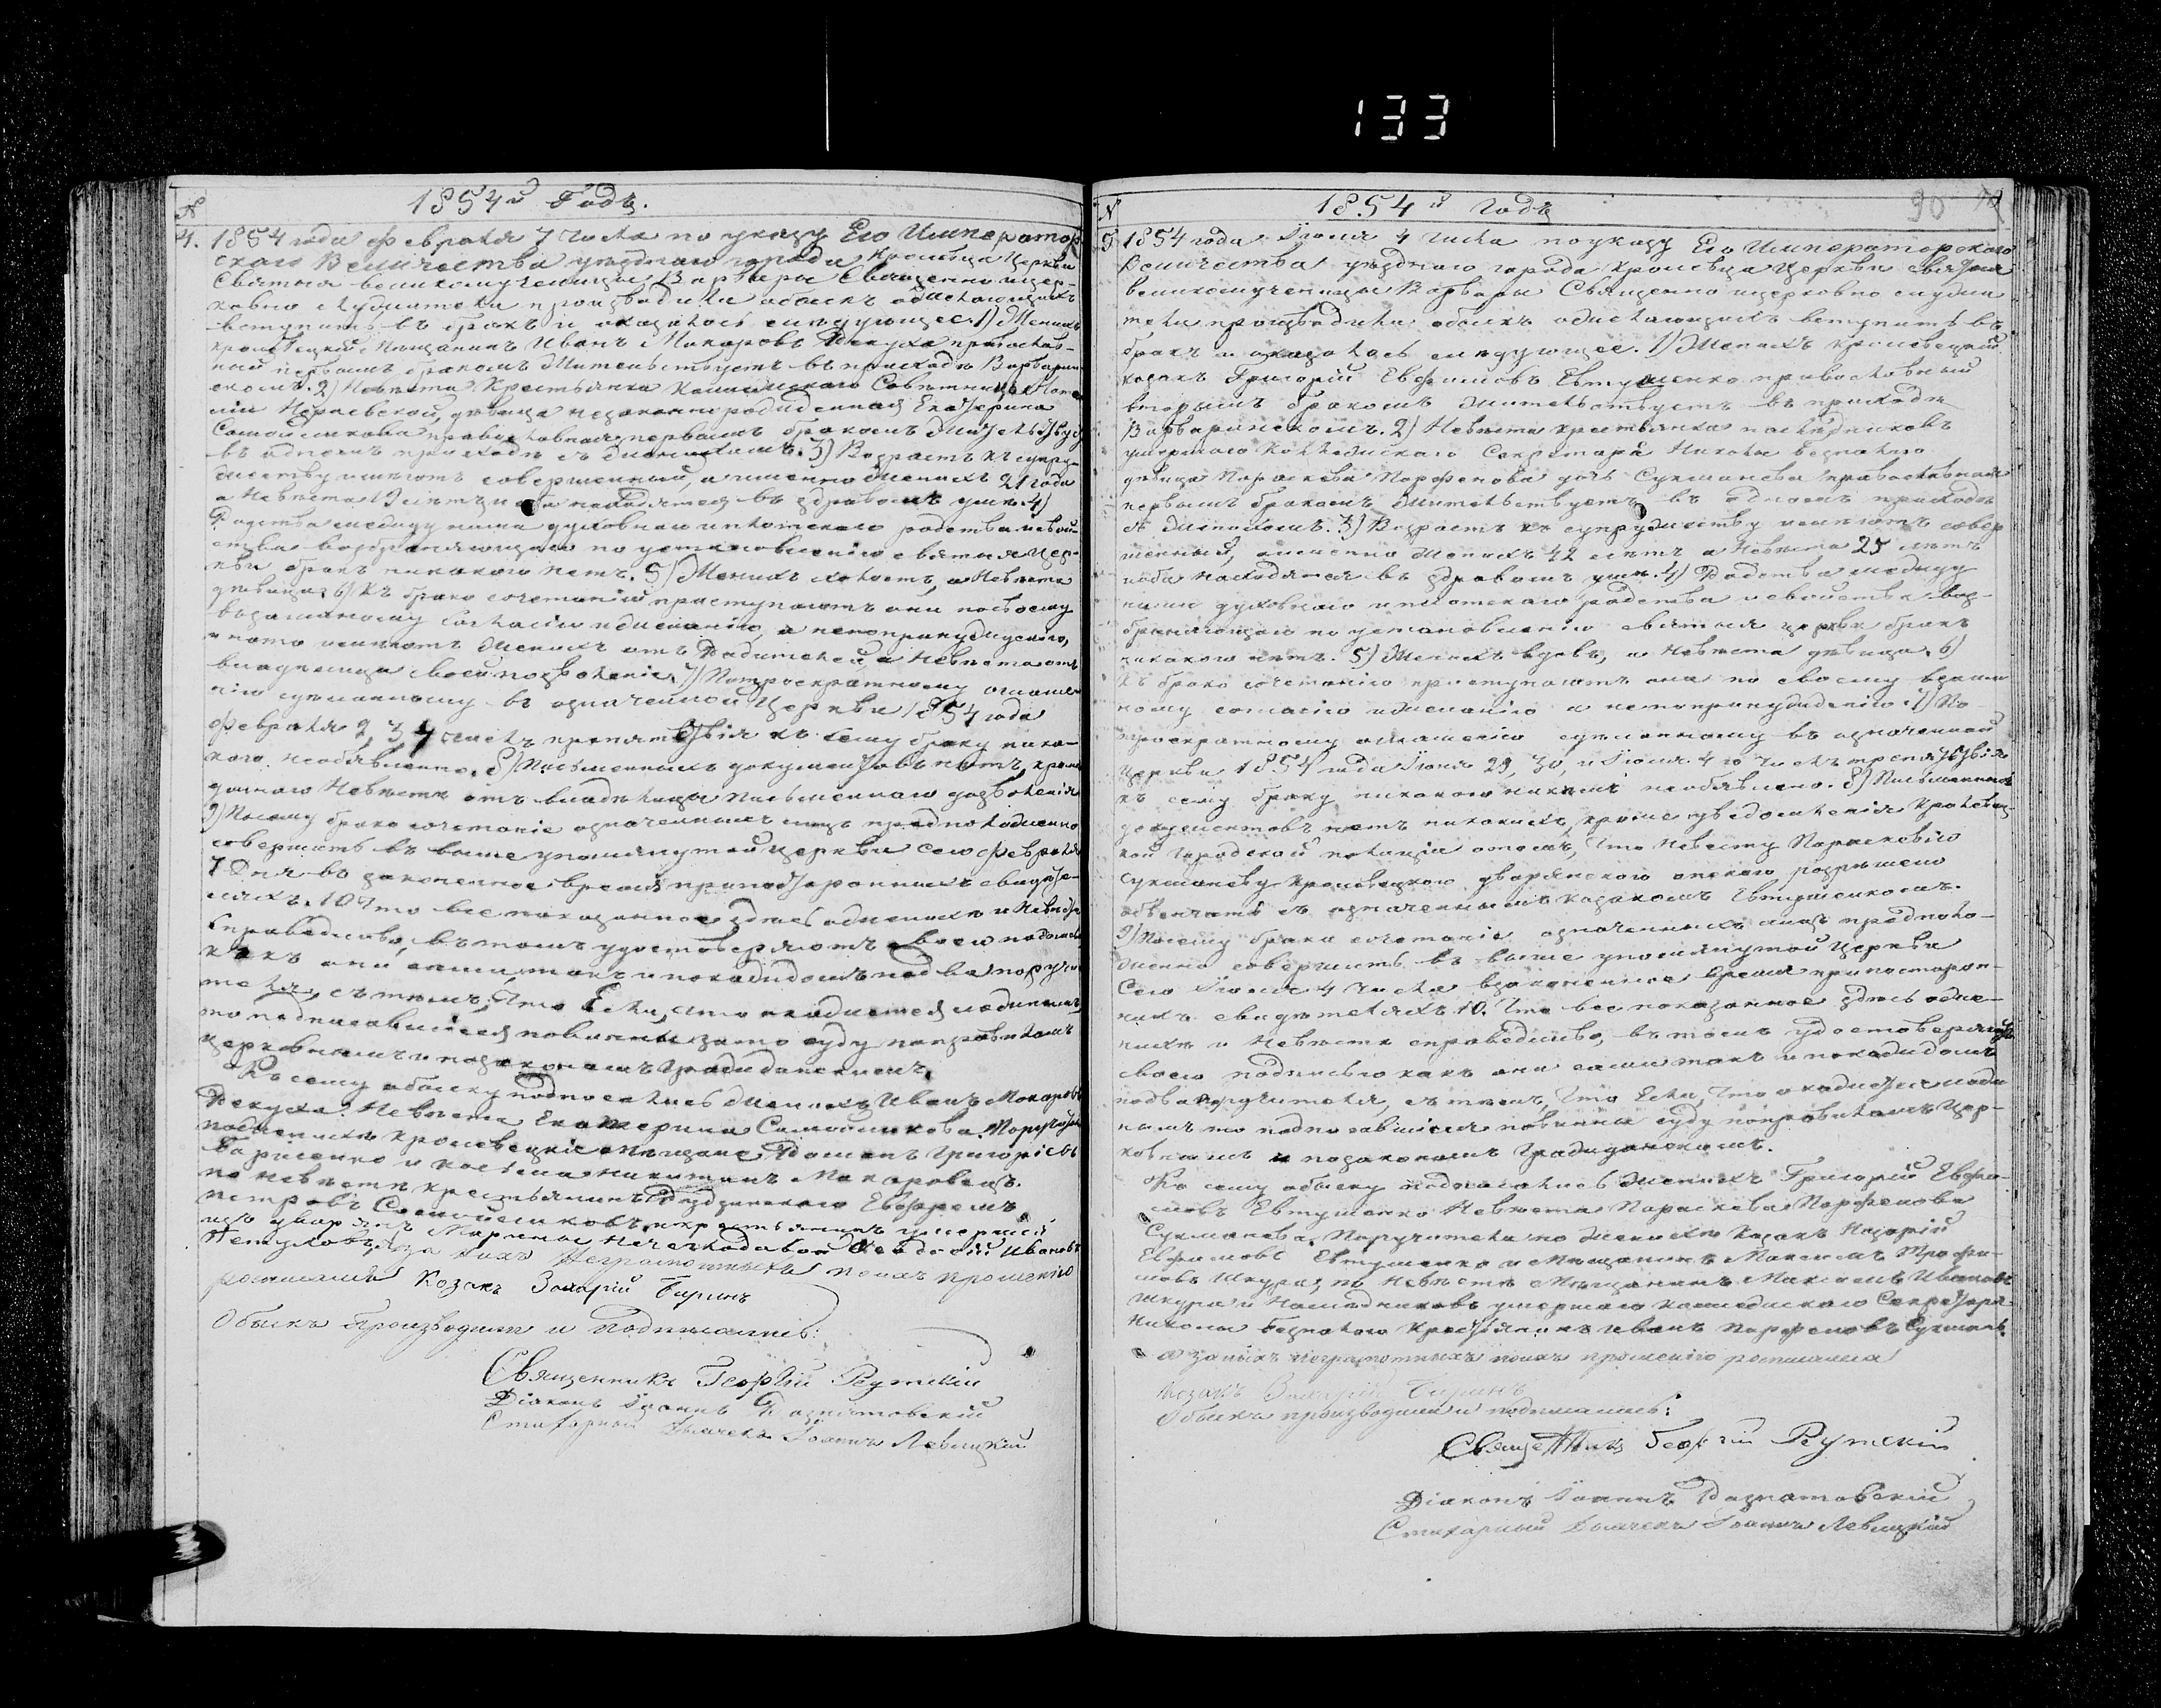 133
1854й Годъ.
№
4. 1854 года Февраля 7 числа по указу Его Император
скаго Величества уезднаго города Кролевца Церкви
Святыя великомученицы Варвары Священно и цер-
ковно служители производили обыскъ о желающихъ
вступить въ бракъ и оказалось следующее. 1) Женихъ
Кролевецкій Мещанинъ Иванъ Макаровъ православ-
ный первымъ бракомъ жительствуетъ въ приходе Варварин
скомъ. 2) Невеста Крестьянка
девица незаконнорожденная Екатерина
Самойликова православная первымъ бракомъ жительствуетъ
въ одномъ приходе съ женихомъ. 3) Возрастъ къ супру-
жеству имеютъ совершенный, а именно женихъ 21 года
а Невеста летъ и оба находятся въ здравомъ уме. 4)
Родства между ними духовнаго и плотскаго родства и свой
ства возбраняющаго по установлению святыя Цер-
кви бракъ никакого нетъ. 5) Женихъ холостъ, а Невеста
девица. 6) Къ брако сочетанію приступаютъ они по своему
взаимному согласію и желанію, а не по принужденію,
и на то имеютъ женихъ отъ Родителей а Невеста отъ
владелица своей позволеніе. 7) По троекратному оглаше
нію сделанному въ означенной Церкви 1854 года
Февраля 2, 3 4 числъ препятствія къ сему браку ника-
кого необъявлено. 8) Письменныхъ документовъ нетъ, кроме
даннаго Невесте отъ владелицы письменнаго дозволенія
9) Посему брако сочетаніе означенныхъ лицъ предположенно
совершить въ выше упомянутой церкви сего Февраля
7 Дня въ законенное время при посторонныхъ свидете-
ляхъ. 10 Что все показанное здесь о женихе и Невесте
справедливо, въ томъ удостоверяютъ своею подписью
какъ они сами, такъ и по каждомъ по два поручи
теля, съ темъ, что Если, что окажется ложнымъ,
то подписавшіеся повинны за то суду по правиламъ
церковнымъ и по законамъ Гражданскимъ.
Къ сему обыску подписались женихъ Иванъ Макаровъ
Невеста Екатерина Самойликова. Поручители
по женихе Кролевецкіе Мещане Романъ Григорьевъ
Борисенко и Никитинъ Макаровецъ.
по Невесте крестьянинъ Евфремъ
Петровъ Самойликовъ, и крестьянинъ умершей
Ивановъ
Петуховъ, а за нихъ Неграмотныхъ по ихъ прошенію
росписался Козакъ Захарій Биринъ
Обыскъ производили и подписались:
Священникъ Георгій Рутскій
Діаконъ Іоаннъ Разнатовскій
Стихарный Дьячекъ Іоаннъ Левицкій
1854й годъ
90
№
5 1854 года Іюля 4 числа по указу Его Императорскаго
Величества уезднаго города Кролевца Церкви святыя
великомученицы Варвары Священно и церковно служи
тели производили обыскъ о желающихъ вступить въ
бракъ и оказалось следующее. 1) Женихъ Кролевецкій
козакъ Григорій Евфимовъ Евтушенко православный
вторымъ бракомъ жительствуетъ въ приходе
Варваринскомъ. 2) Невеста крестьянка наследниковъ
умершаго Коллежскаго Секретаря Николы Безпалаго
девица Параскева Парфенова дочь Сукманова православная
первымъ бракомъ жительствуетъ въ одномъ приходе
съ женихомъ. 3) Возрастъ къ супружеству имеютъ совер
шенный, а именно женихъ 42 летъ а Невеста 25 летъ
и оба находятся въ здравомъ уме. 4) Родства между
ними духовнаго и плотскаго родства и свойства воз-
браняющаго по установленію святыя церкви бракъ
никакого нетъ. 5) Женихъ вдовъ, а Невеста девица. 6)
Къ брако сочетанію приступаютъ они по своему взаим
ному согласію и желанію а не по принужденію. 7) По
троекратному оглашенію сделанному въ означенной
Церкви 1854 года Іюня 29, 30, и Іюля 4 го числъ препятствія
къ сему браку никакого никемъ необъявлено. 8) Письменныхъ
документовъ нетъ никакихъ, кроме уведомленія Кролевец-
кой Городской полиціи о томъ, что Невесту Параскевію
Сукманову Кролевецкою дворянскою опекою разрешено
обвенчать съ означеннымъ козакомъ Евтушенкомъ.
9) Посему брако сочетаніе означенныхъ лицъ предполо-
женно совершить въ выше упомянутой Церкви
Сего Іюля 4 числа въ законенное время при посторон-
нихъ свидетеляхъ 10. Что все показанное здесь о же-
нихе и Невесте справедливо, въ томъ удостоверяютъ
своею подписью какъ они сами такъ и по каждомъ
по два поручителя, съ темъ, что Если, что окажется лож
нымъ то подписавшіеся повинны суду по правиламъ цер-
ковнымъ и по законамъ Гражданскимъ.
Къ сему обыску подписались женихъ Григорій Евфи-
мовъ Евтушенко Невеста Параскева Парфенова
Сукманова. Поручители по женихе Козакъ Назарій
Евфимовъ Евтушенко и Мещанинъ Максимъ Трофи-
мовъ Шкура, по Невесте Мещанинъ Максимъ Ивановъ
Шкура и Наследниковъ умершаго Коллежскаго Секретаря
Николы Безпалаго Крестьянинъ Иванъ Парфеновъ Сукманъ
а за нихъ неграмотныхъ по ихъ прошенію росписался
Козакъ Захарій Биринъ
Обыскъ производили и подписались:
Священникъ Георгій Рутскій
Діаконъ Іоаннъ Разнатовскій
Стихарный Дьячекъ Іоаннъ Левицкій